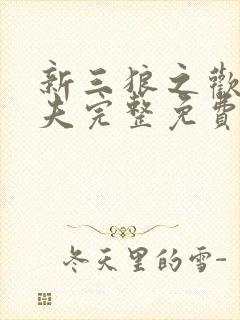 新三狼之歡
夫完整免費
冬天里的雪-